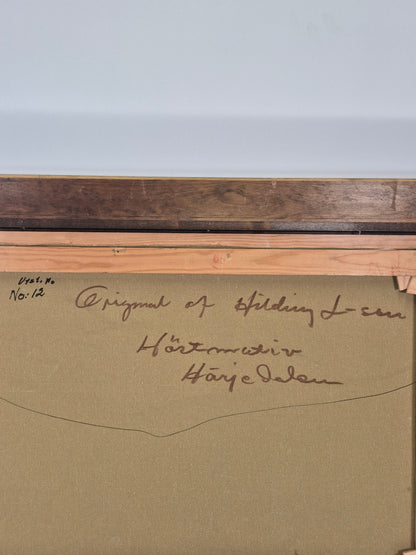 Utst. No
No: 12
Original af Hilding L-son
Höstmotiv
Härjedalen